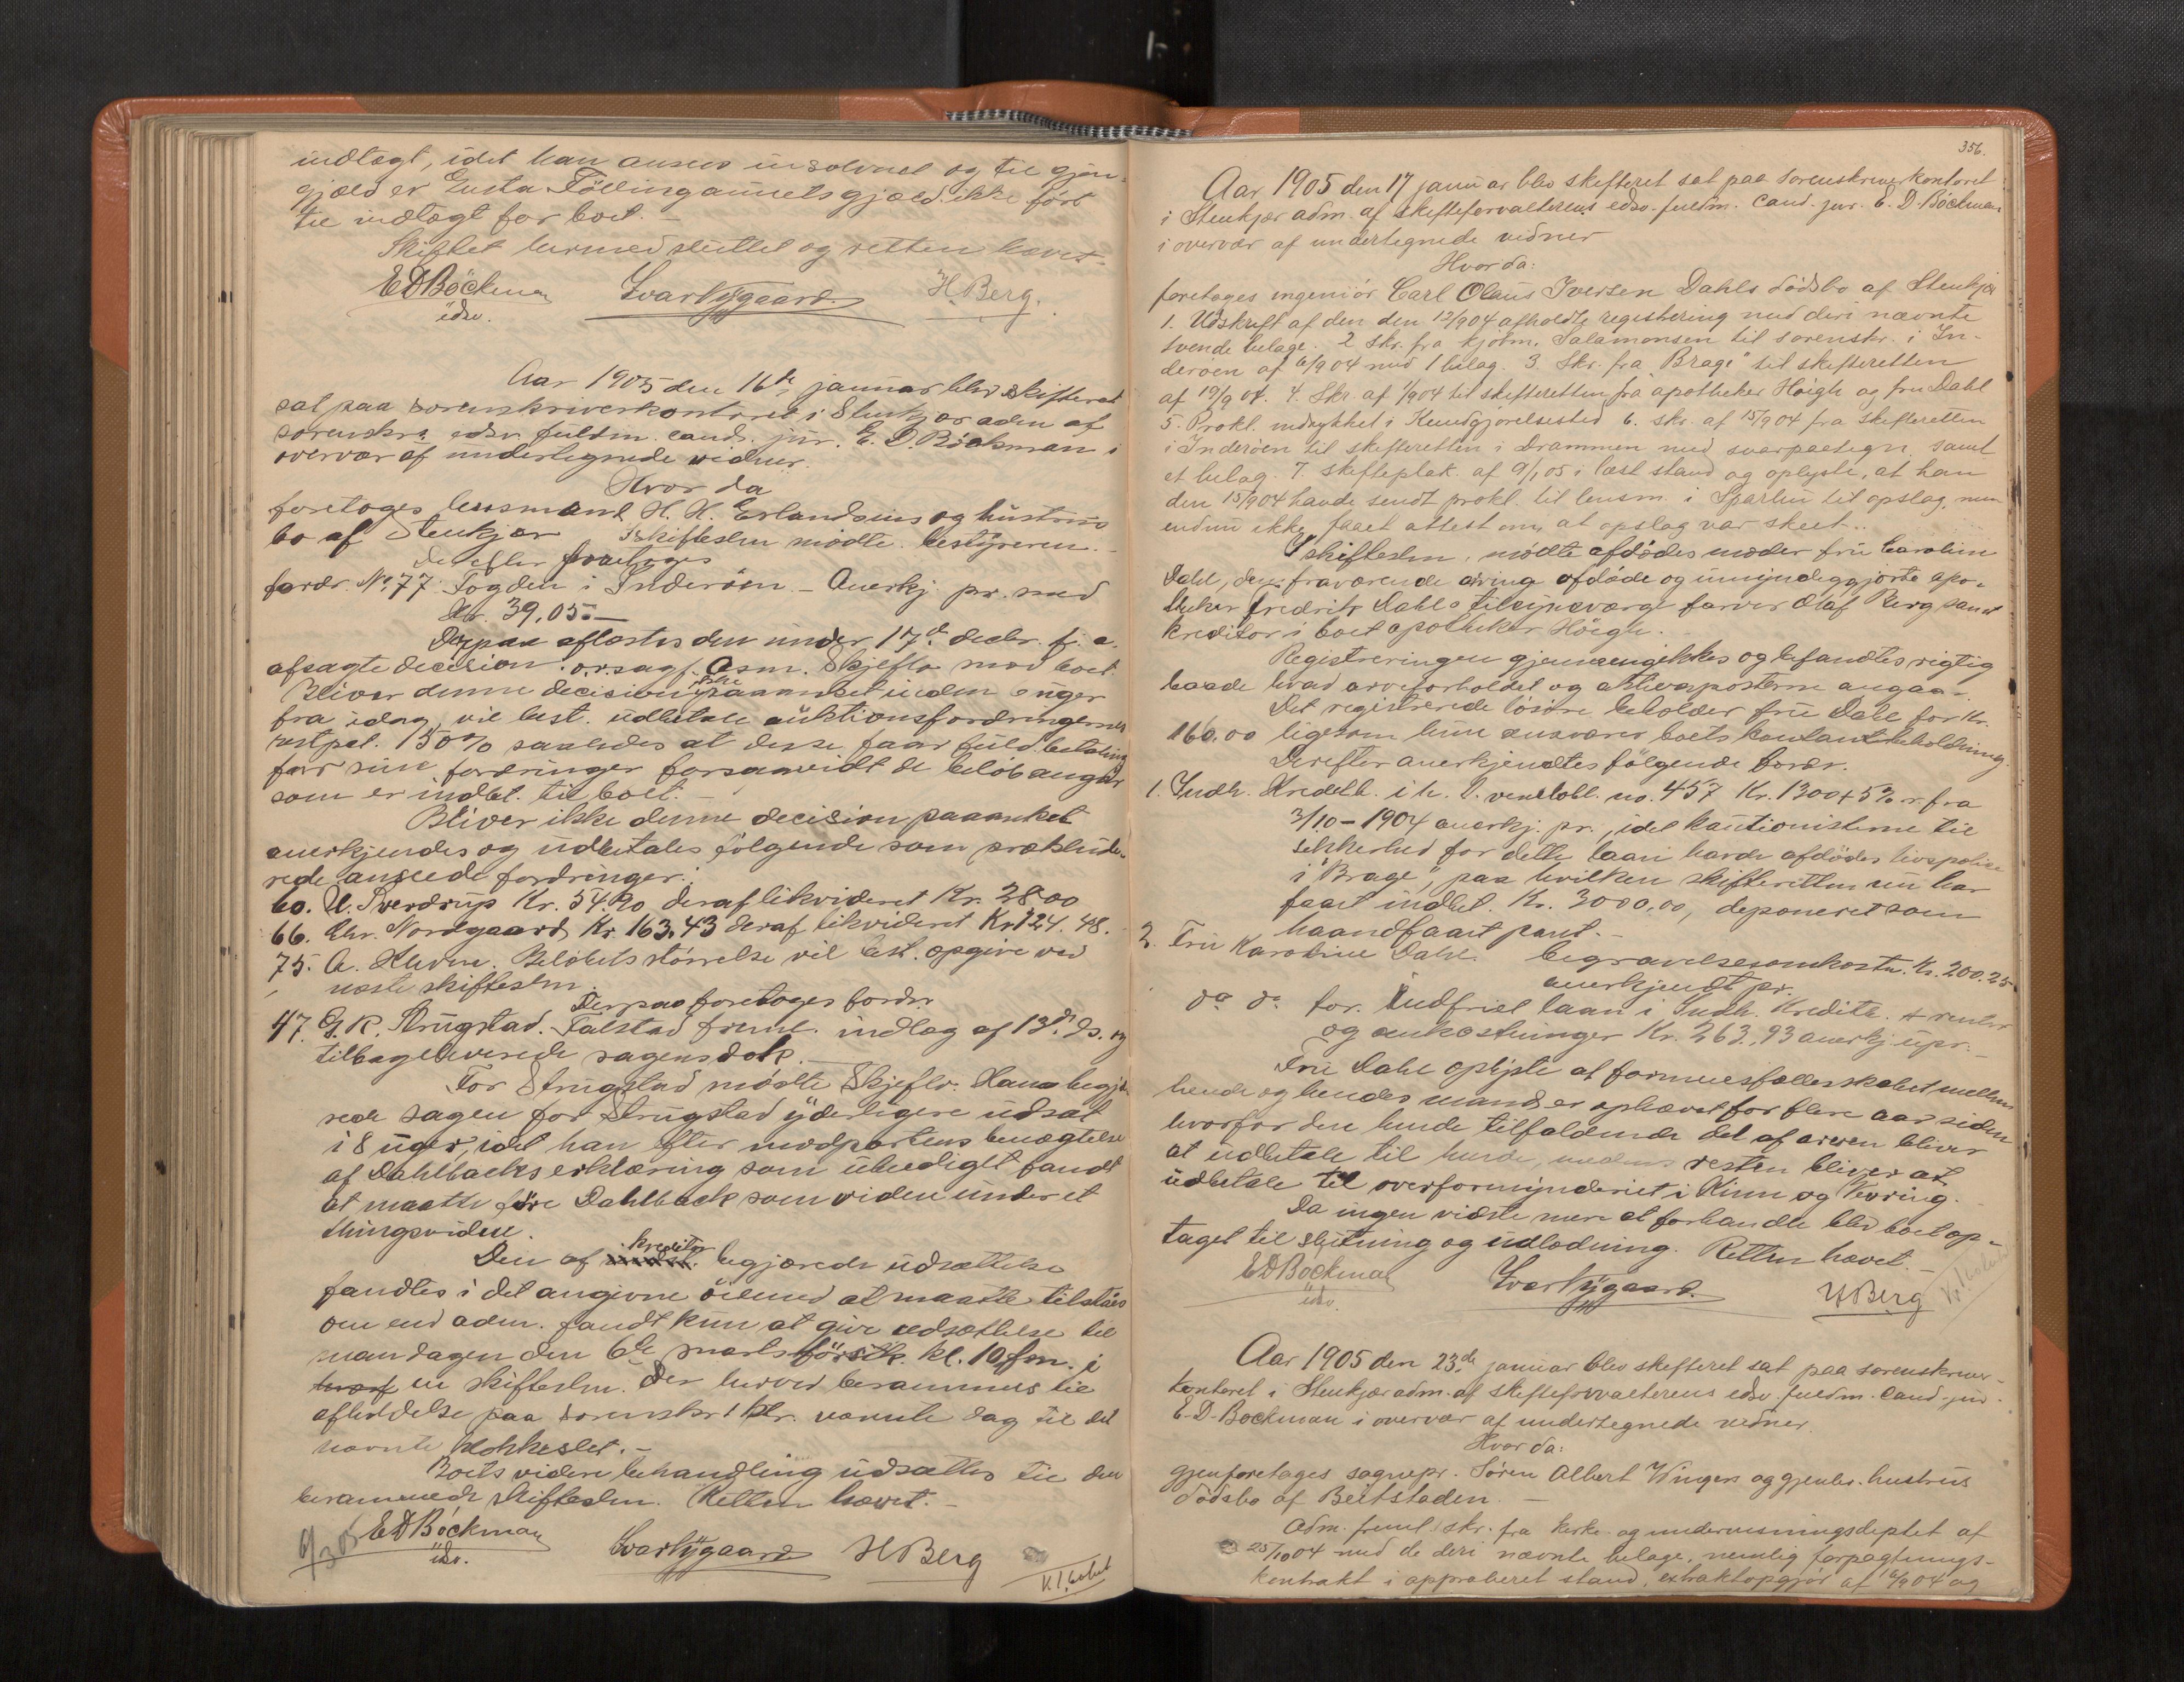 indtægt, idet han ansees insolvent og til gjen-
gjæld er Gusta Föllingaunets gjæld ikke ført
til indtægt for boet. -
Skiftet hermed sluttet og retten hævet. -
EDBöckman Ivar Nygaard. H Berg.
edsv.
Aar 1905 den 16de januar blev skifteret
sat paa sorenskriverkontoret i Stenkjær adm af
sorenskr.s edsv. fuldm. cand. jur. E. D. Böckman i
overvær af undertegnede vidner.
Hvor da
foretoges lensmand H. K. Erlandsens og hustrus
bo af Stenkjær I skifteslm mödte bestyreren. -
Derefter foretoges
fordr. No 77. Fogden i Inderöen. - Anerkj pr. med
Kr. 39.05. -
Derpaa aflæstes den under 17de decbr. f. a.
afsagte decision: orsagf. Asm. Skjeflo mod boet.
Bliver denne decision ikke paaanket inden 6 uger
fra idag, vil best. udbetale auktionsfordringernes
restpct. 150% saaledes at disse faar fuld betaling
for sine fordringer forsaavidt de beløb angaar
som er indbet. til boet. -
Bliver ikke denne decision paaanket
anerkjendes og udbetales fölgende som præklude-
rede ansеede fordringer:
60. U. Sverdrup Kr. 54.20 deraf likvideret Kr. 28.00
66. Chr. Nordgaard Kr 163.43 deraf likvideret Kr 124.48.
75. A. Beløbets størrelse vil best. opgive ved
næste skifteslm.
Derpaa foretoges fordr.
47. G. K. Strugstad. Falstad freml. indlæg af 13de ds. og
tilbageleverede sagens dok. -
For Strugstad mødte Skjeflo. Han begjæ-
rede sagen for Strugstad yderligere udsat
i 8 uger, idet han efter modpartens benægtelse
af Dahlbacks erklæring som ubediget fandt
at maatte före Dahlback som viden under et
thingsvidne.
Den af kreditor begjærede udsættelse
fandtes i det angivne öiemed at maatte tilstaaes
om end adm. fandt kun at give udsættelse til
mandagen den 6te marts förstk. kl. 10 fm. i
en skifteslm. der herved berammes til
afholdelse paa sorenskr.ktr. nævnte dag til det
nævnte klokkeslet. -
Boets videre behandling udsættes til den
berammede skifteslm. Retten hævet. -
6/3 05 EDBöckman Ivar Nygaard H Berg
edsv.
356.
Aar 1905 den 17 januar blev skifteret sat paa sorenskriverkontoret
i Stenkjær adm. af skifteforvalterens edsv. fuldm. cand. jur. E. D. Böckman
i overvær af undertegnede vidner
Hvor da:
foretoges ingeniör Carl Olaus Iversen Dahls dödsbo af Stenkjær
1. Udskrift af den den 12/9 04 afholdte registrering med deri nævnte
tvende bilage. 2 Skr. fra kjöbm. Salamonsen til sorenskr. i In-
deröen af 6/9 04 med 1 bilag. 3. Skr. fra "Brage" til skifteretten
af 19/9 04. 4. Skr. af 1/9 04 til skifteretten fra apotheker Höigh og fru Dahl
5. Prokl. indrykket i Kundgjörelsestid. 6. skr. af 15/9 04 fra skifteretten
i Inderöen til skifteretten i Drammen med svarpaategn. samt
et bilag. 7. skifteplak. af 9/1 05 i læst stand og oplyste, at han
den 15/9 04 havde sendt prokl. til lensm. i Sparbu til opslag, men
endnu ikke faaet attest om, at opslag var skeet..
I skifteslm. mödte afdödes moder fru Caroline
Dahl, den fraværende arving afdöde og umyndiggjorte apo-
theker Fredrik Dahls tilsynsværge farver Olaf Berg samt
kreditor i boet apotheker Höigh. -
Registreringen gjennemgikkes og befandtes rigtig
baade hvad arveforholdet og aktivaposterne angaar.
Det registrerede lösöre beholder fru Dahl for Kr.
160.00 ligesom hun ansvarer boets kontantbeholdning.
Derefter anerkjendtes fölgende fordr.
1. Indh. Kreditb. i h. t. vexelobl. no. 457 Kr. 1300 + 5% r. fra
3/10 - 1904 anerkj. pr., idet kautionisterne til
sikkerhed for dette laan havde afdödes livspolice
i "Brage", paa hvilken skifteretten nu har
faaet indbet. Kr. 3000,00, deponeret som
haandfaaet pant. -
2. Fru Karoline Dahl. begravelsesomkostn. Kr. 200.25
anerkjendt pr.
do do for indfriet laan i Indh. Kreditb. + renter
og omkostninger Kr. 263,93 anerkj. upr. -
Fru Dahl oplyste at formuesfællesskabet mellem
hende og hendes mand er ophævet for flere aar siden
hvorfor den hende tilfaldende del af arven bliver
at udbetale til hende, medens resten bliver at
udbetale til overformynderiet i Kinn og Kevring.
Da ingen vidste mere at forhandle blev boet op-
taget til slutning og udlodning. Retten hævet. -
EDBöckman Ivar Nygaard. H Berg
edsv.
Aar 1905 den 23de januar blev skifteret sat paa sorenskriver-
kontoret i Stenkjær adm. af skifteforvalterens edsv fuldm. cand. jur.
E. D. Böckman i overvær af undertegnede vidner.
Hvor da:
gjenforetages sognepr. Sören Albert Wingers og gjenlev. hustrus
dödsbo af Beitstaden. -
Adm. freml. skr. fra kirke og undervisningsdeptet af
25/10 04 med de deri nævnte bilage, nemlig forpagtnings-
kontrakt i approberet stand, extraktopgjör af 16/9 04 og